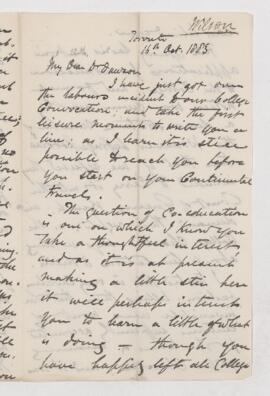 Wilson
Toronto
16th Oct. 1883
My Dear Dr Dawson
I have just got over
the labours incident to our College
Convocation; and take the first
leisure moments to write you a
line; as I learn it is still
possible to reach you before
you start on your Continental
travels.
The question of Coeducation
is one on which I know you
take a thoughtful interest
and as it is at present
making a little stir here
it will perhaps interest
you to learn a little of what
is doing – though you
have happily left all College